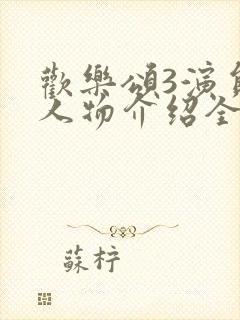 歡樂頌3演員
人物介紹全
蘇柠